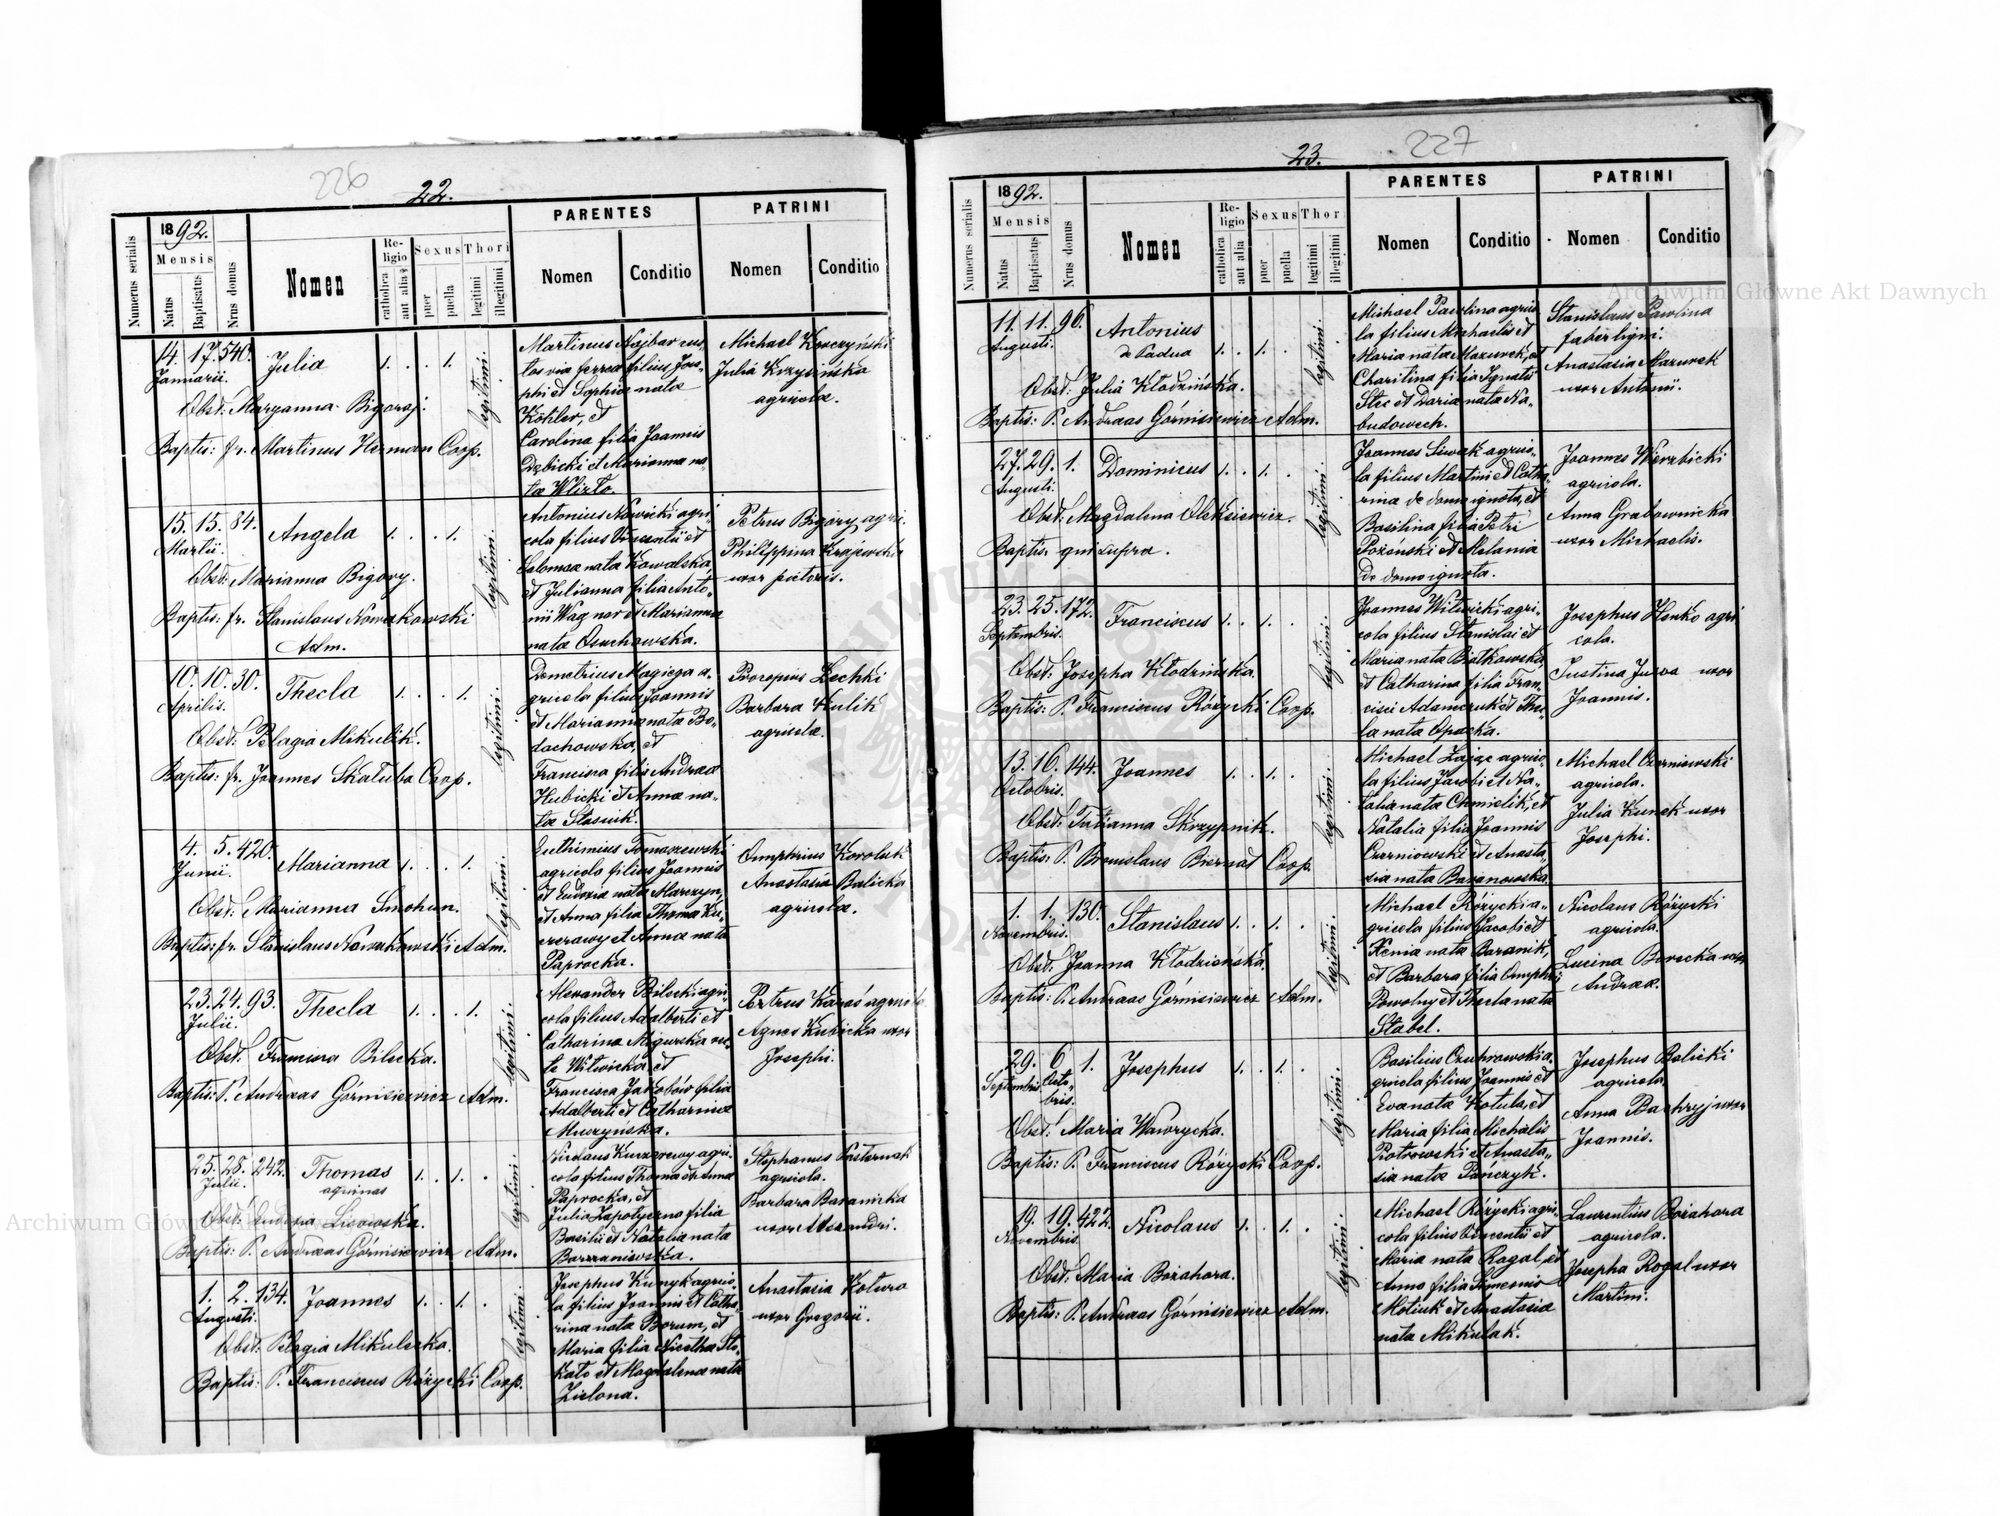 226
22.
Numerus serialis
1892.
Mensis
Natus
Baptisatus
Nrus domus
Nomen
Religio
catholica
aut alia
Sexus
puer
puella
Thori
legitimi
illegitimi
PARENTES
Nomen
Conditio
PATRINI
Nomen
Conditio
14. 17. 540. Julia 1. 1. legitimi.
Januarii.
Obst. Maryanna Bigoraj.
Baptis: fr. Martinus Herman Coop.
Martinus Najbar cus-
tos viae ferreae filius Jose-
phi et Sophia nata
Köhler, et
Carolina filia Joannis
Dębicki et Marianna na-
ta Wlizło.
Michael Kruczyński
Julia Krzyżińska
agricola.
15. 15. 84. Angela 1. 1. legitimi.
Martii.
Obst. Marianna Bigory.
Baptis: fr. Stanislaus Nowakowski
Adm.
Antonius Nowicki agri-
cola filius Vincentii et
Salomea nata Kowalska,
et Julianna filia Anto-
nii Wagner et Marianna
nata Osuchowska.
Petrus Bigory agri.
Philippina Krajewska
uxor pictoris.
10. 10. 30. Thecla 1. 1. legitimi.
Aprilis.
Obst: Pelagia Mikulik.
Baptis: fr. Joannes Skałuba Coop.
Demetrius Magiega a-
gricola filius Joannis
et Marianna nata Bo-
dachowska, et
Francisca filia Andreae
Hubicki et Anna na-
ta Stasiuk.
Procopius Lechki
Barbara Kulik
agricolae.
4. 5. 420. Marianna 1. 1. legitimi.
Junii.
Obst: Marianna Smohun.
Baptis: fr. Stanislaus Nowakowski Adm.
Euthimius Tomaszewski
agricola filius Joannis
et Eudoxia nata Marczyn,
et Anna filia Thoma Ku-
czerawy et Anna nata
Paprocka.
Onuphrius Koroluk
Anastasia Balicka
agricolae.
23. 24. 93. Thecla 1. 1. legitimi.
Julii.
Obst: Francisca Bilecka.
Baptis: P. Andreas Górnisiewicz Adm.
Alexander Bilecki agri-
cola filius Adalberti et
Catharina Migurska vel-
te Witwicka, et
Francisca Jakobów filia
Adalberti et Catharina
Muszyńska.
Petrus Karaś agricola
Agnes Kubicka uxor
Josephi.
25. 28. 242. Thomas 1. 1. legitimi.
Julii.
aquinas
Obst: Lisowska.
Baptis: P. Andreas Górnisiewicz Adm.
Nicolaus Kuczerawy agri-
cola filius Thoma et Anna
Paprocka, et
Julia Zapotyczna filia
Basilii et Natalia nata
Barzaniewska.
Stephanus Pasternak
agricola.
Barbara Baranicka
uxor Alexandri.
1. 2. 134. Joannes 1. 1. legitimi.
Augusti.
Obst: Pelagia Mikulecka.
Baptis: P. Franciscus Różycki Coop.
Josephus Kunyk agrico-
la filius Joannis et Catha-
rina nata Borum, et
Maria filia Nicetha Sło-
kato et Magdalena nata
Zielona.
Anastasia Koturo
uxor Gregorii.
227
23.
Numerus serialis
1892.
Mensis
Natus
Baptisatus
Nrus domus
Nomen
Religio
catholica
aut alia
Sexus
puer
puella
Thori
legitimi
illegitimi
PARENTES
Nomen
Conditio
PATRINI
Nomen
Conditio
11. 11. 96. Antonius 1. 1. legitimi.
Augusti.
de Padua
Obst: Julia Kłodzińska.
Baptis: P. Andreas Górnisiewicz Adm.
Michael Pawlina agrico-
la filius Michaelis et
Maria nata Mazurek, et
Charitina filia Ignatii
Stec et Daria nata Na-
budowech.
Stanislaus Pawlina
faber ligni.
Anastasia Mazurek
uxor Antonii.
27. 29. 1. Dominicus 1. 1. legitimi.
Augusti.
Obst: Magdalena Oleksiewicz.
Baptis. qui supra.
Joannes Siwak agrico-
la filius Martini et Catha-
rina de domo ignota, et
Basilina filia Petri
Pożoński et Melania
de domo ignota.
Joannes Wierzbicki
agricola.
Anna Grabownicka
uxor Michaelis.
23. 25. 172. Franciscus 1. 1. legitimi.
Septembris.
Obst: Josepha Kłodzińska.
Baptis: P. Franciscus Różycki Coop.
Joannes Witwicki agri-
cola filius Stanislai et
Maria nata Białkowska,
et Catharina filia Fran-
cisci Adamczuk et The-
la nata Opacka.
Josephus Henko agri
cola.
Justina Juwa uxor
Joannis.
13. 16. 144. Joannes 1. 1. legitimi.
Octobris.
Obst: Tatianna Skrzypnik.
Baptis: P. Bronislaus Biernat Coop.
Michael Zając agrico-
la filius Jacobi et Na-
talia nata Chmielik, et
Natalia filia Joannis
Czerniowski et Anasta-
sia nata Baranowska.
Michael Czerniewski
agricola.
Julia Kunek uxor
Josephi.
1. 1. 130. Stanislaus 1. 1. legitimi.
Novembris.
Obst: Joanna Kłodzieńska.
Baptis: P. Andreas Górnisiewicz Adm.
Michael Różycki a-
gricola filius Jacobi et
Xenia nata Baranik,
et Barbara filia Onuphrii
Powolny et Thecla nata
Stabel.
Nicolaus Różycki
agricola.
Lucina Borecka uxor
Andreae.
29. 6 1. Josephus 1. 1. legitimi.
Septembris. Octo-
bris.
Obst: Maria Wawrycka.
Baptis: P. Franciscus Różycki Coop.
Basilius Czuprowski a-
gricola filius Joannis et
Eva nata Kotula, et
Maria filia Michalis
Piotrowski et Anasta-
sia nata Pańczyk.
Josephus Balicki
agricola
Anna Bachryj uxor
Joannis.
19. 19. 422. Nicolaus 1. 1. legitimi.
Novembris.
Obst: Maria Bożahora.
Baptis: P. Andreas Górnisiewicz Adm.
Michael Różycki agri-
cola filius Vincentii et
Maria nata Ragal, et
Anna filia Simeonis
Motiuk et Anastasia
nata Mikulak.
Laurentius Bożahora
agricola.
Josepha Rogal uxor
Martini.
Archiwum Główne Akt Dawnych
Archiwum Główne Akt Dawnych